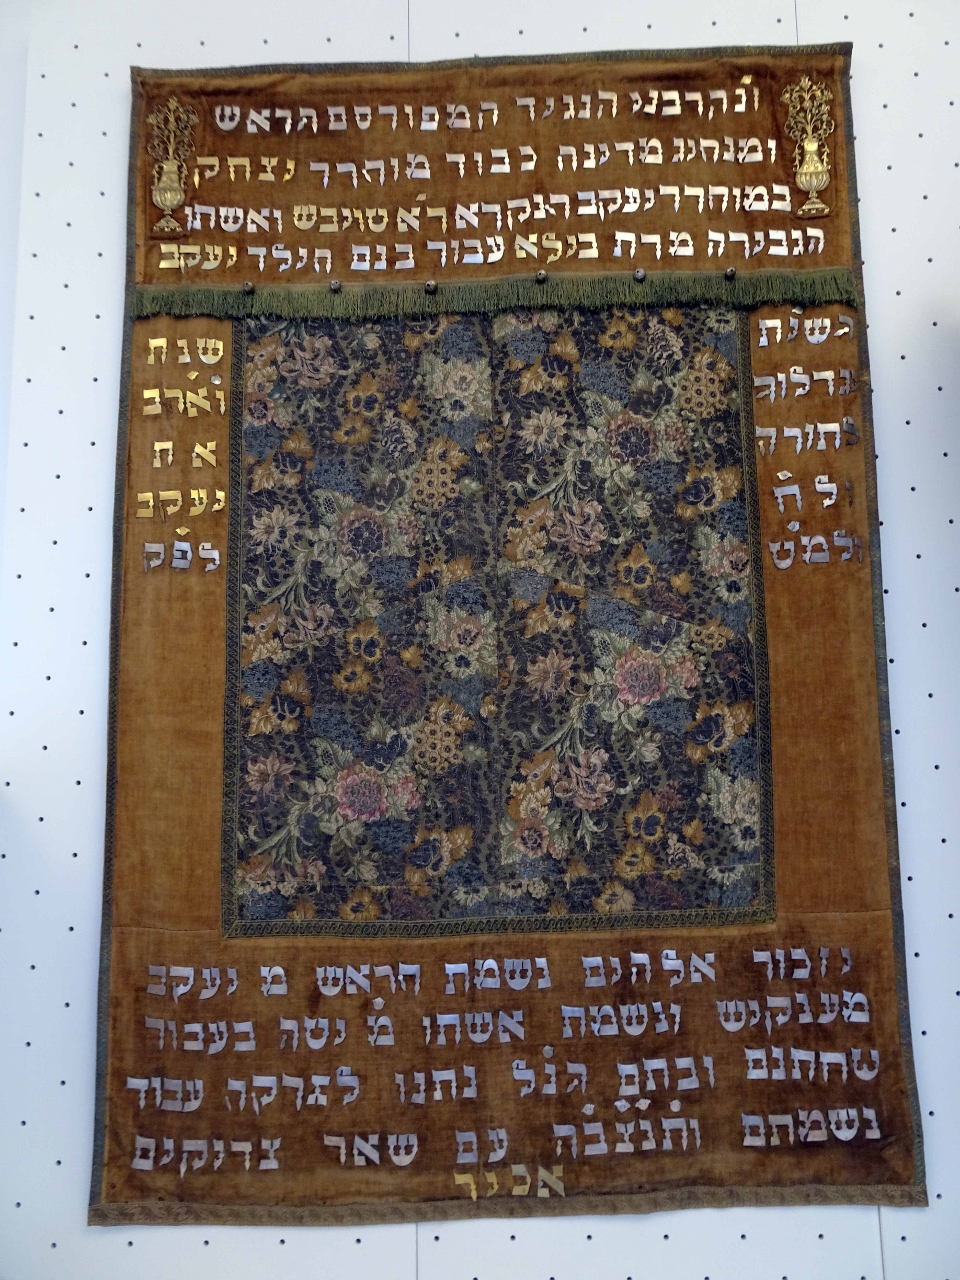 הנגיד המפורסם הראש
ומנהיג מדינה כבוד מוהרר יצחק
במוהרר יעקב טויבש ואשתו
הגבירה מרת בילא עבור בנם הילד יעקב
לתורה
ול ח̇
שנת
וארב
א ת
יעקב
לפ̇ק
יזכור אלהים נשמת הראש מ יעקב
מענקיש ונשמת אשתו מ̇ יטה בעבור
שחתנם ובתם הנ̇ל נתנו לצדקה עבור
נשמתם ות̇נ̇צ̇ב̇ה עם שאר צדיקים
אמן